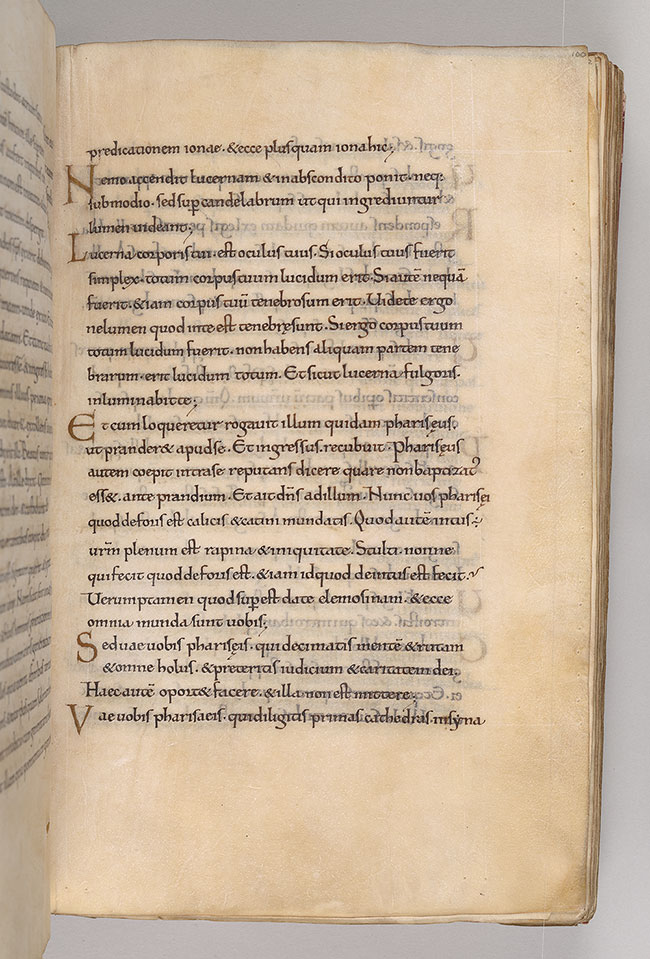 100
predicationem ionae. & ecce plusquam iona hic;
Nemo accendit lucernam & inabscondito ponit. neq:
submodio. sed sup candelabrum ut qui ingrediuntur
lumen videant;
Lucerna corporis tui. est oculus tuus. Si oculus tuus fuerit
simplex. totum corpus tuum lucidum erit. Si autē nequā
fuerit. &iam corpus tuū tenebrosum erit. Videte ergo
nelumen quod inte est tenebrę sunt. Si ergo corpus tuum
totum lucidum fuerit. non habens aliquam partem tene
brarum. erit lucidum totum. Et sicut lucerna fulgoris.
inluminabit te;
Et cum loqueretur rogavit illum quidam pharisęus.
ut prander& apud se. Et ingressus. recubuit. Pharisęus
autem coepit intra se reputans dicere quare non baptizat᾽
ess&. ante prandium. Et ait dn̄s ad illum. Nunc vos pharisęi
quod deforis est calicis & catini mundatis. Quod autē intus ;
urm̄ plenum est rapina & iniquitate. Stulti. nonne
qui fecit quod deforis est. &iam id quod deintus est fecit.
Verumptamen quod supest date elemosinam. & ecce
omnia munda sunt vobis;
Sed vae vobis pharisęis. qui decimatis mentē & rutam
& omne holus. & preteritis iudicium & caritatem dei.
Haec autē oport& facere. & illa non est mittere;
Vae vobis pharisaeis. qui diligitis primas cathedras. insyna